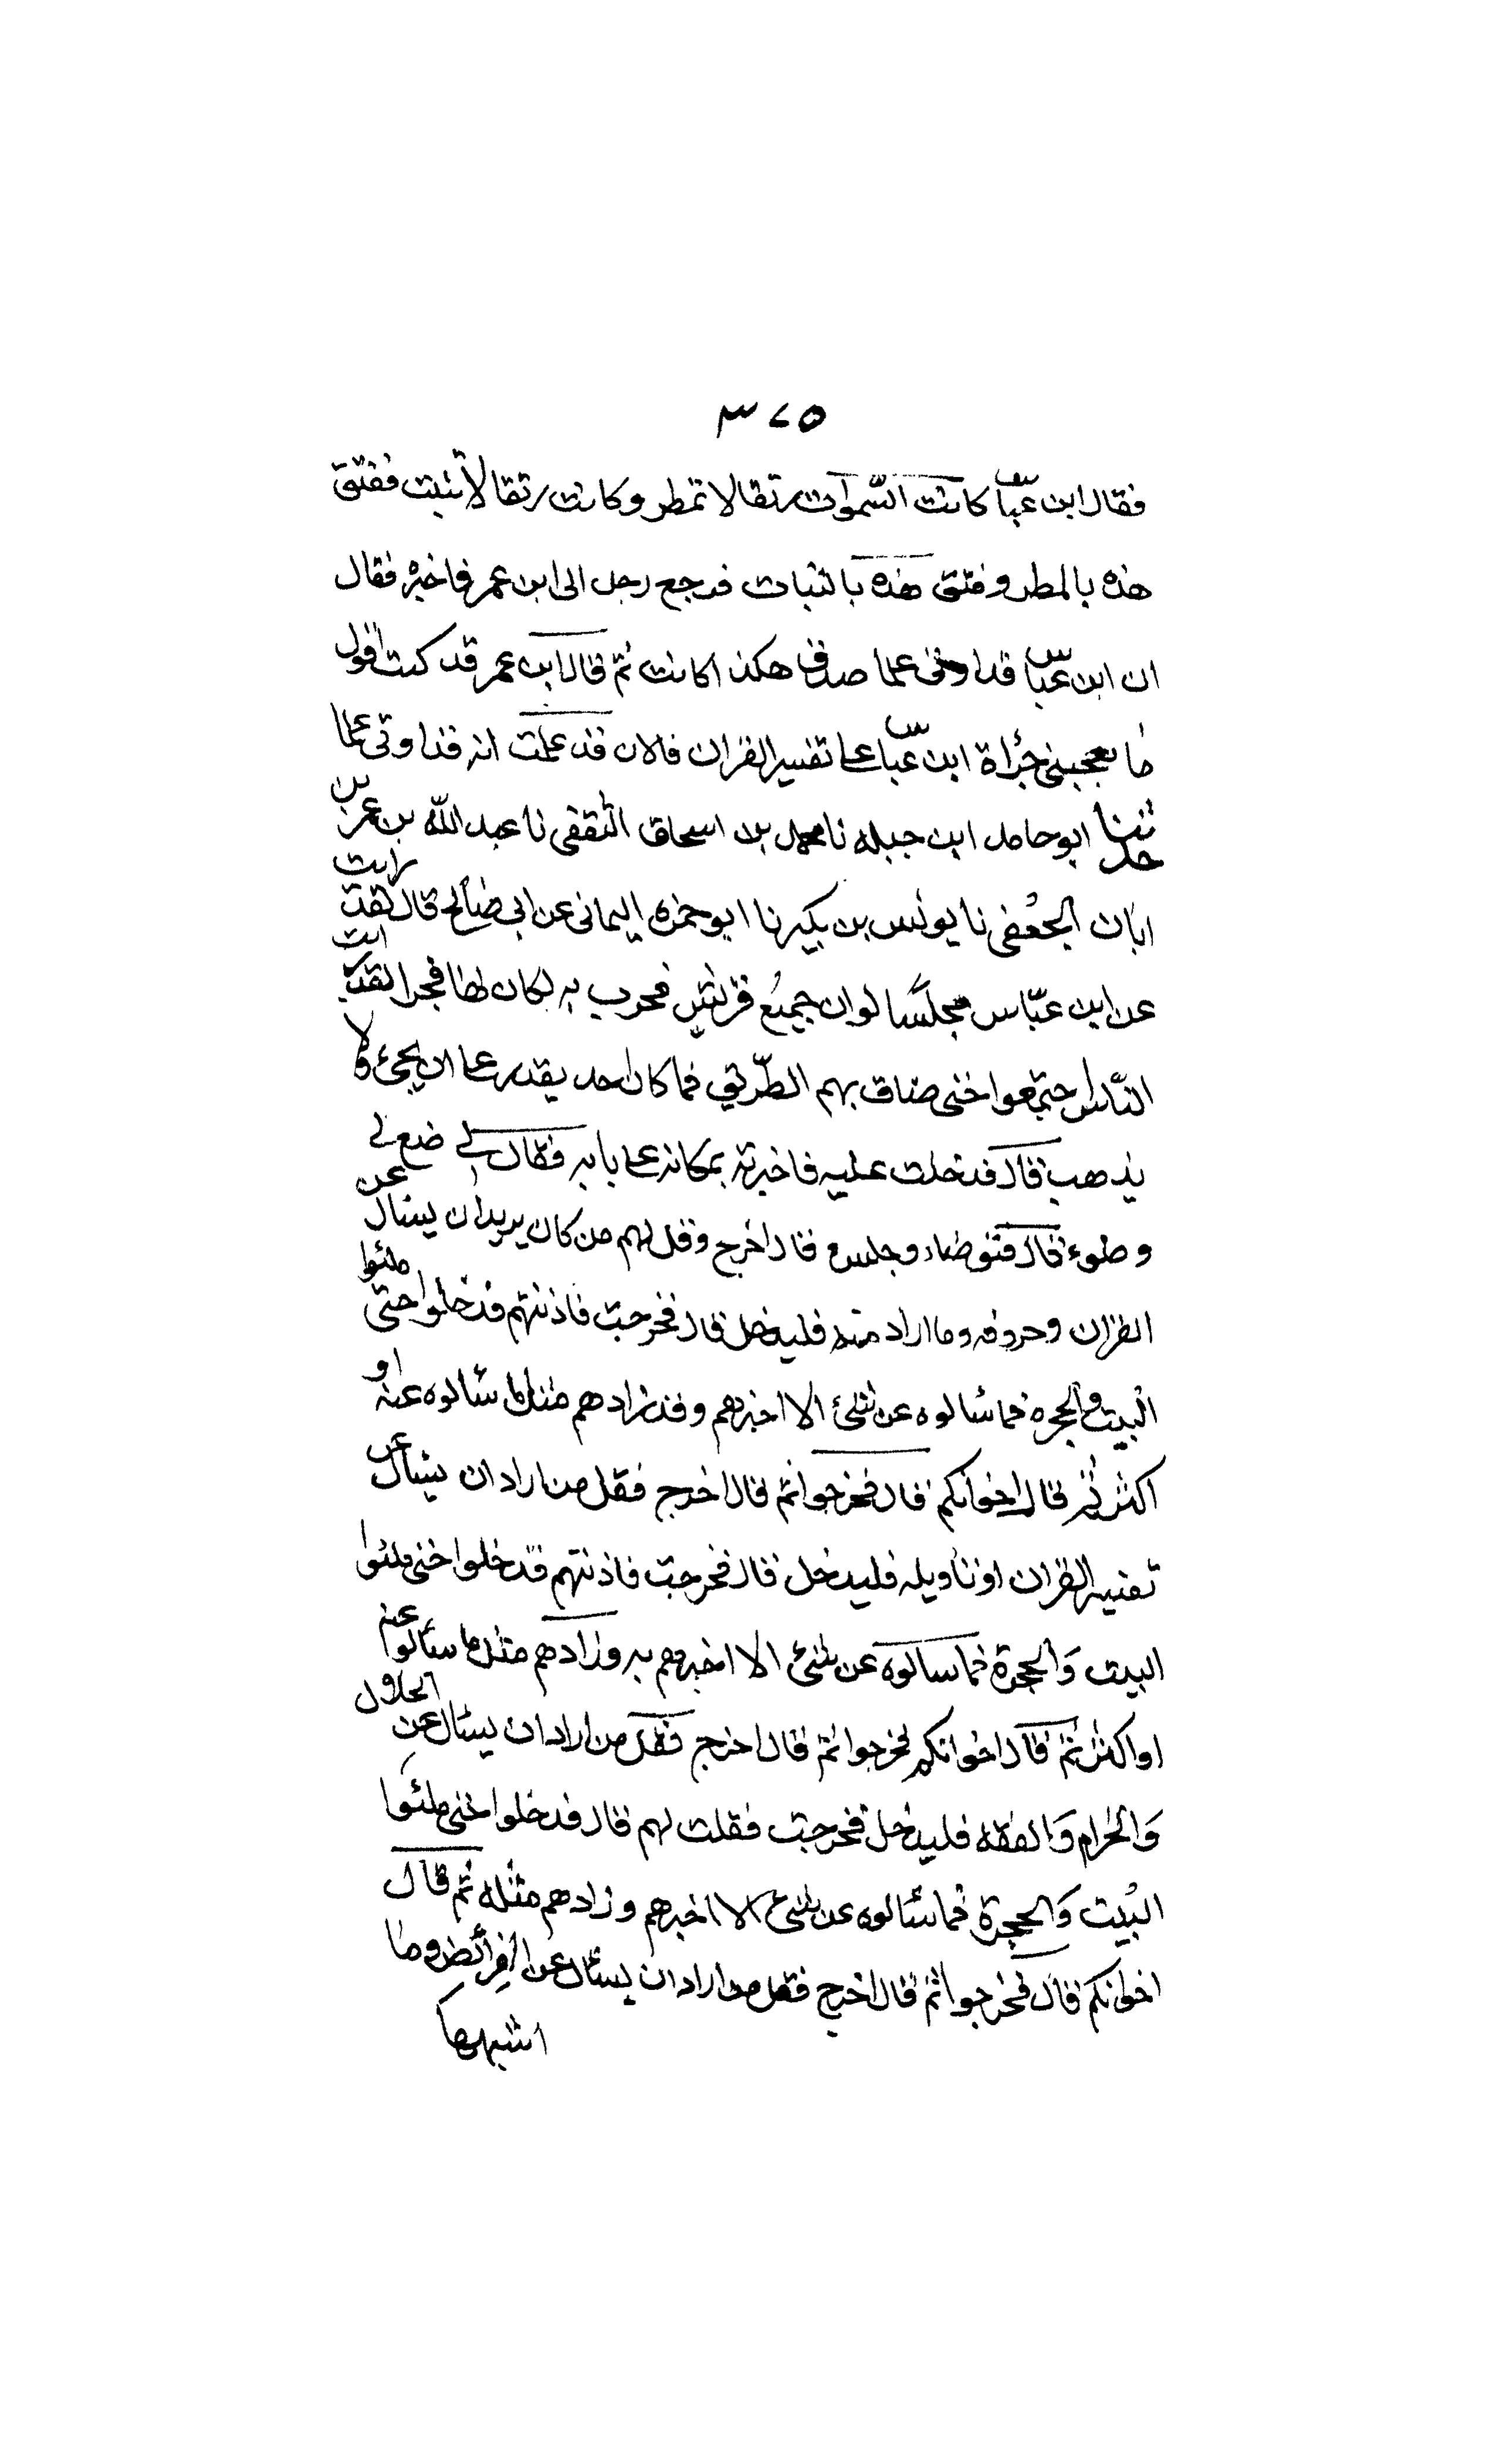 ٣٧٥
فقال ابن عباس كانت السموات رتقا لا تمطر وكانت رتقا لا تنبت ففتق
هذه بالمطر وفتق هذه بالنبات فرجع رجل الى ابن عمر فاخبره فقال
ان ابن عباس قد اوتى علما صدق هكذا كانت ثم قال ابن عمر قد كنت اقول
ما يعجبنى جرأة ابن عباس على تفسير القران فالان قد علمت انه قد اوتى علما
حدثنا ابو حامد ابن جبله نا محمد بن اسحاق الثقفى نا عبد الله بن عمر بن
ابان الجعفى نا يونس بن بكير نا ابو حمزه اليمانى عن ابى صالح قال لقد رايت
عن ابن عباس مجلسا لو ان جميع قريش فخرب به لكان لها فخرا لقد رايت
الناس اجتمعوا حتى ضاق بهم الطريق فما كان احد يقدر على ان يجئ ولا
يذهب قال فدخلت عليه فاخبرته بمكانه على بابه فقال لى ضع لى
وضوء قال فتوضاء وجلس قال اخرج وقل لهم من كان يريد ان يسئال عن
القران وحروفه وما اراد منه فليدخل قال فخرجت فاذنتهم فدخلوا حتى ملئوا
البيت والحجره فما سٔالوه عن شئ الا اخبرهم وقد زادهم مثل ما سٔالوه عنه او
اكثر ثم قال اخوانكم قال فخرجوا ثم قال اخرج فقل من اراد ان يسئال عن
تفسير القران او تاويله فليدخل قال فخرجت فاذنتهم فدخلوا حتى ملئوا
البيت والحجرة فما سالوه عن شئ الا اخبرهم به وزادهم مثل ما سئالوا عنه
او اكثر ثم قال اخوانكم فخرجوا ثم قال اخرج فقل من اراد ان يسئال عن الحلال
والحرام والفقه فليدخل فخرجت فقلت لهم قال فدخلوا حتى ملئوا
البيت والحجرة فما سٔالوه عن شئ الا اخبرهم وزادهم مثله ثم قال
اخوانكم قال فخرجوا ثم قال اخرج فقل من اراد ان يسئال عن الفرائض وما
اشبهها